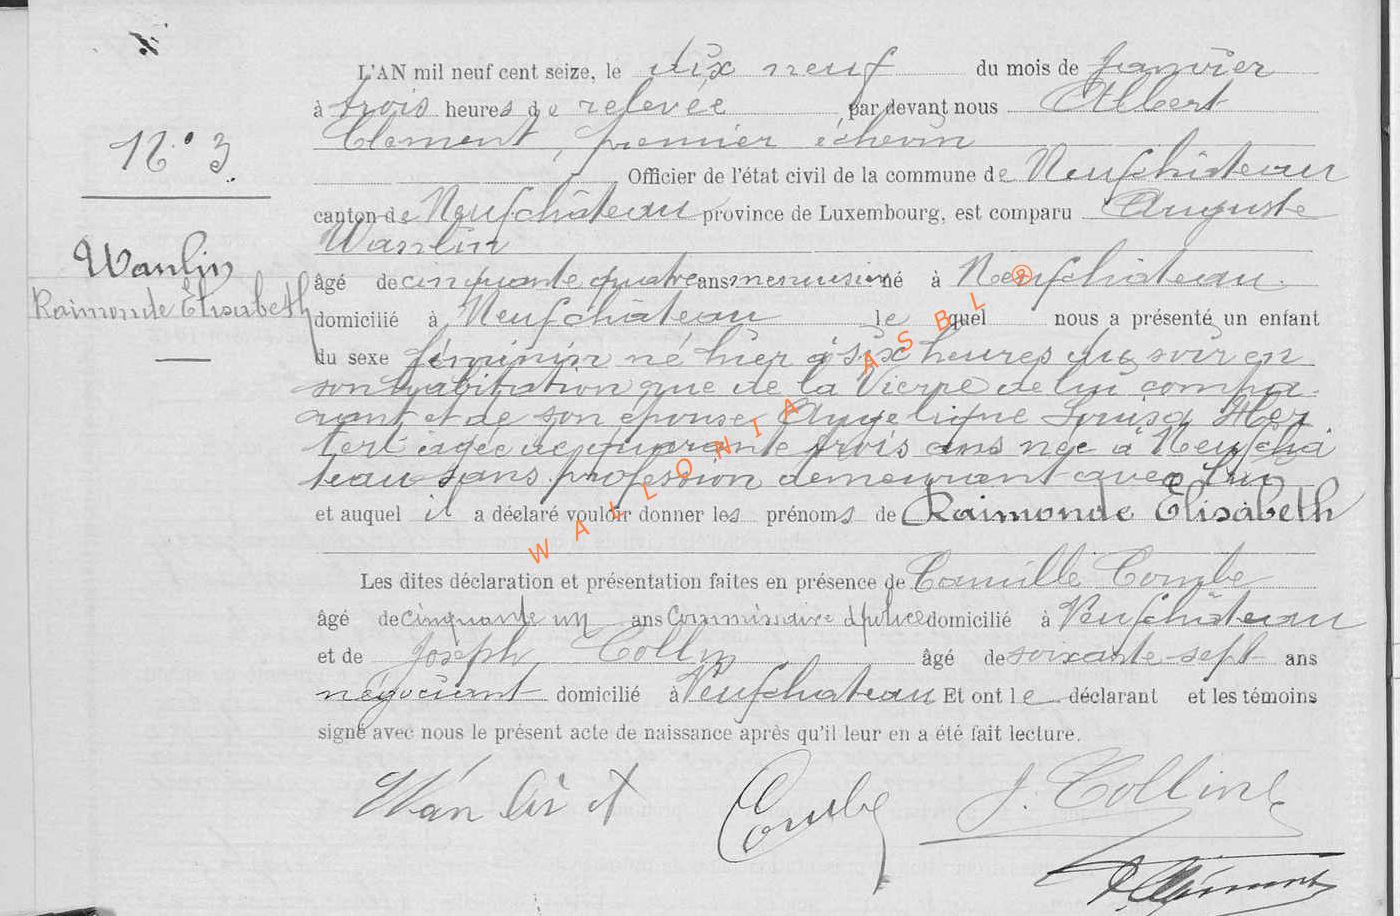 L'AN mil neuf cent seize, le dix neuf du mois de janvier
à trois heures de relevée, par devant nous Albert
Clement, premier échevin
N° 3
Officier de l'état civil de la commune de Neufchâteau
canton de Neufchâteau province de Luxembourg, est comparu Auguste
Wanlin
Wanlin
Raimonde Elisabeth
âgé de cinquante quatre ans menuisier né à Neufchâteau
domicilié à Neufchâteau lequel nous a présenté un enfant
du sexe féminin né hier à six heures du soir en
son habitation rue de la Vierge de lui compa-
rant et de son épouse Angelique Louisa
agée de quarante trois ans née à Neufchâ
teau sans profession demeurant avec lui
et auquel il a déclaré vouloir donner les prénoms de Raimonde Elisabeth
Les dites déclaration et présentation faites en présence de Camille Combe
âgé de cinquante un ans Commissaire d police domicilié à Neufchâteau
et de Joseph Collin âgé de soixante-sept ans
négociant domicilié à Neufchateau Et ont le déclarant et les témoins
signé avec nous le présent acte de naissance après qu'il leur en a été fait lecture.
Wanlin A Combe J. Collin
A Clément
WALLONIA ASBL ®